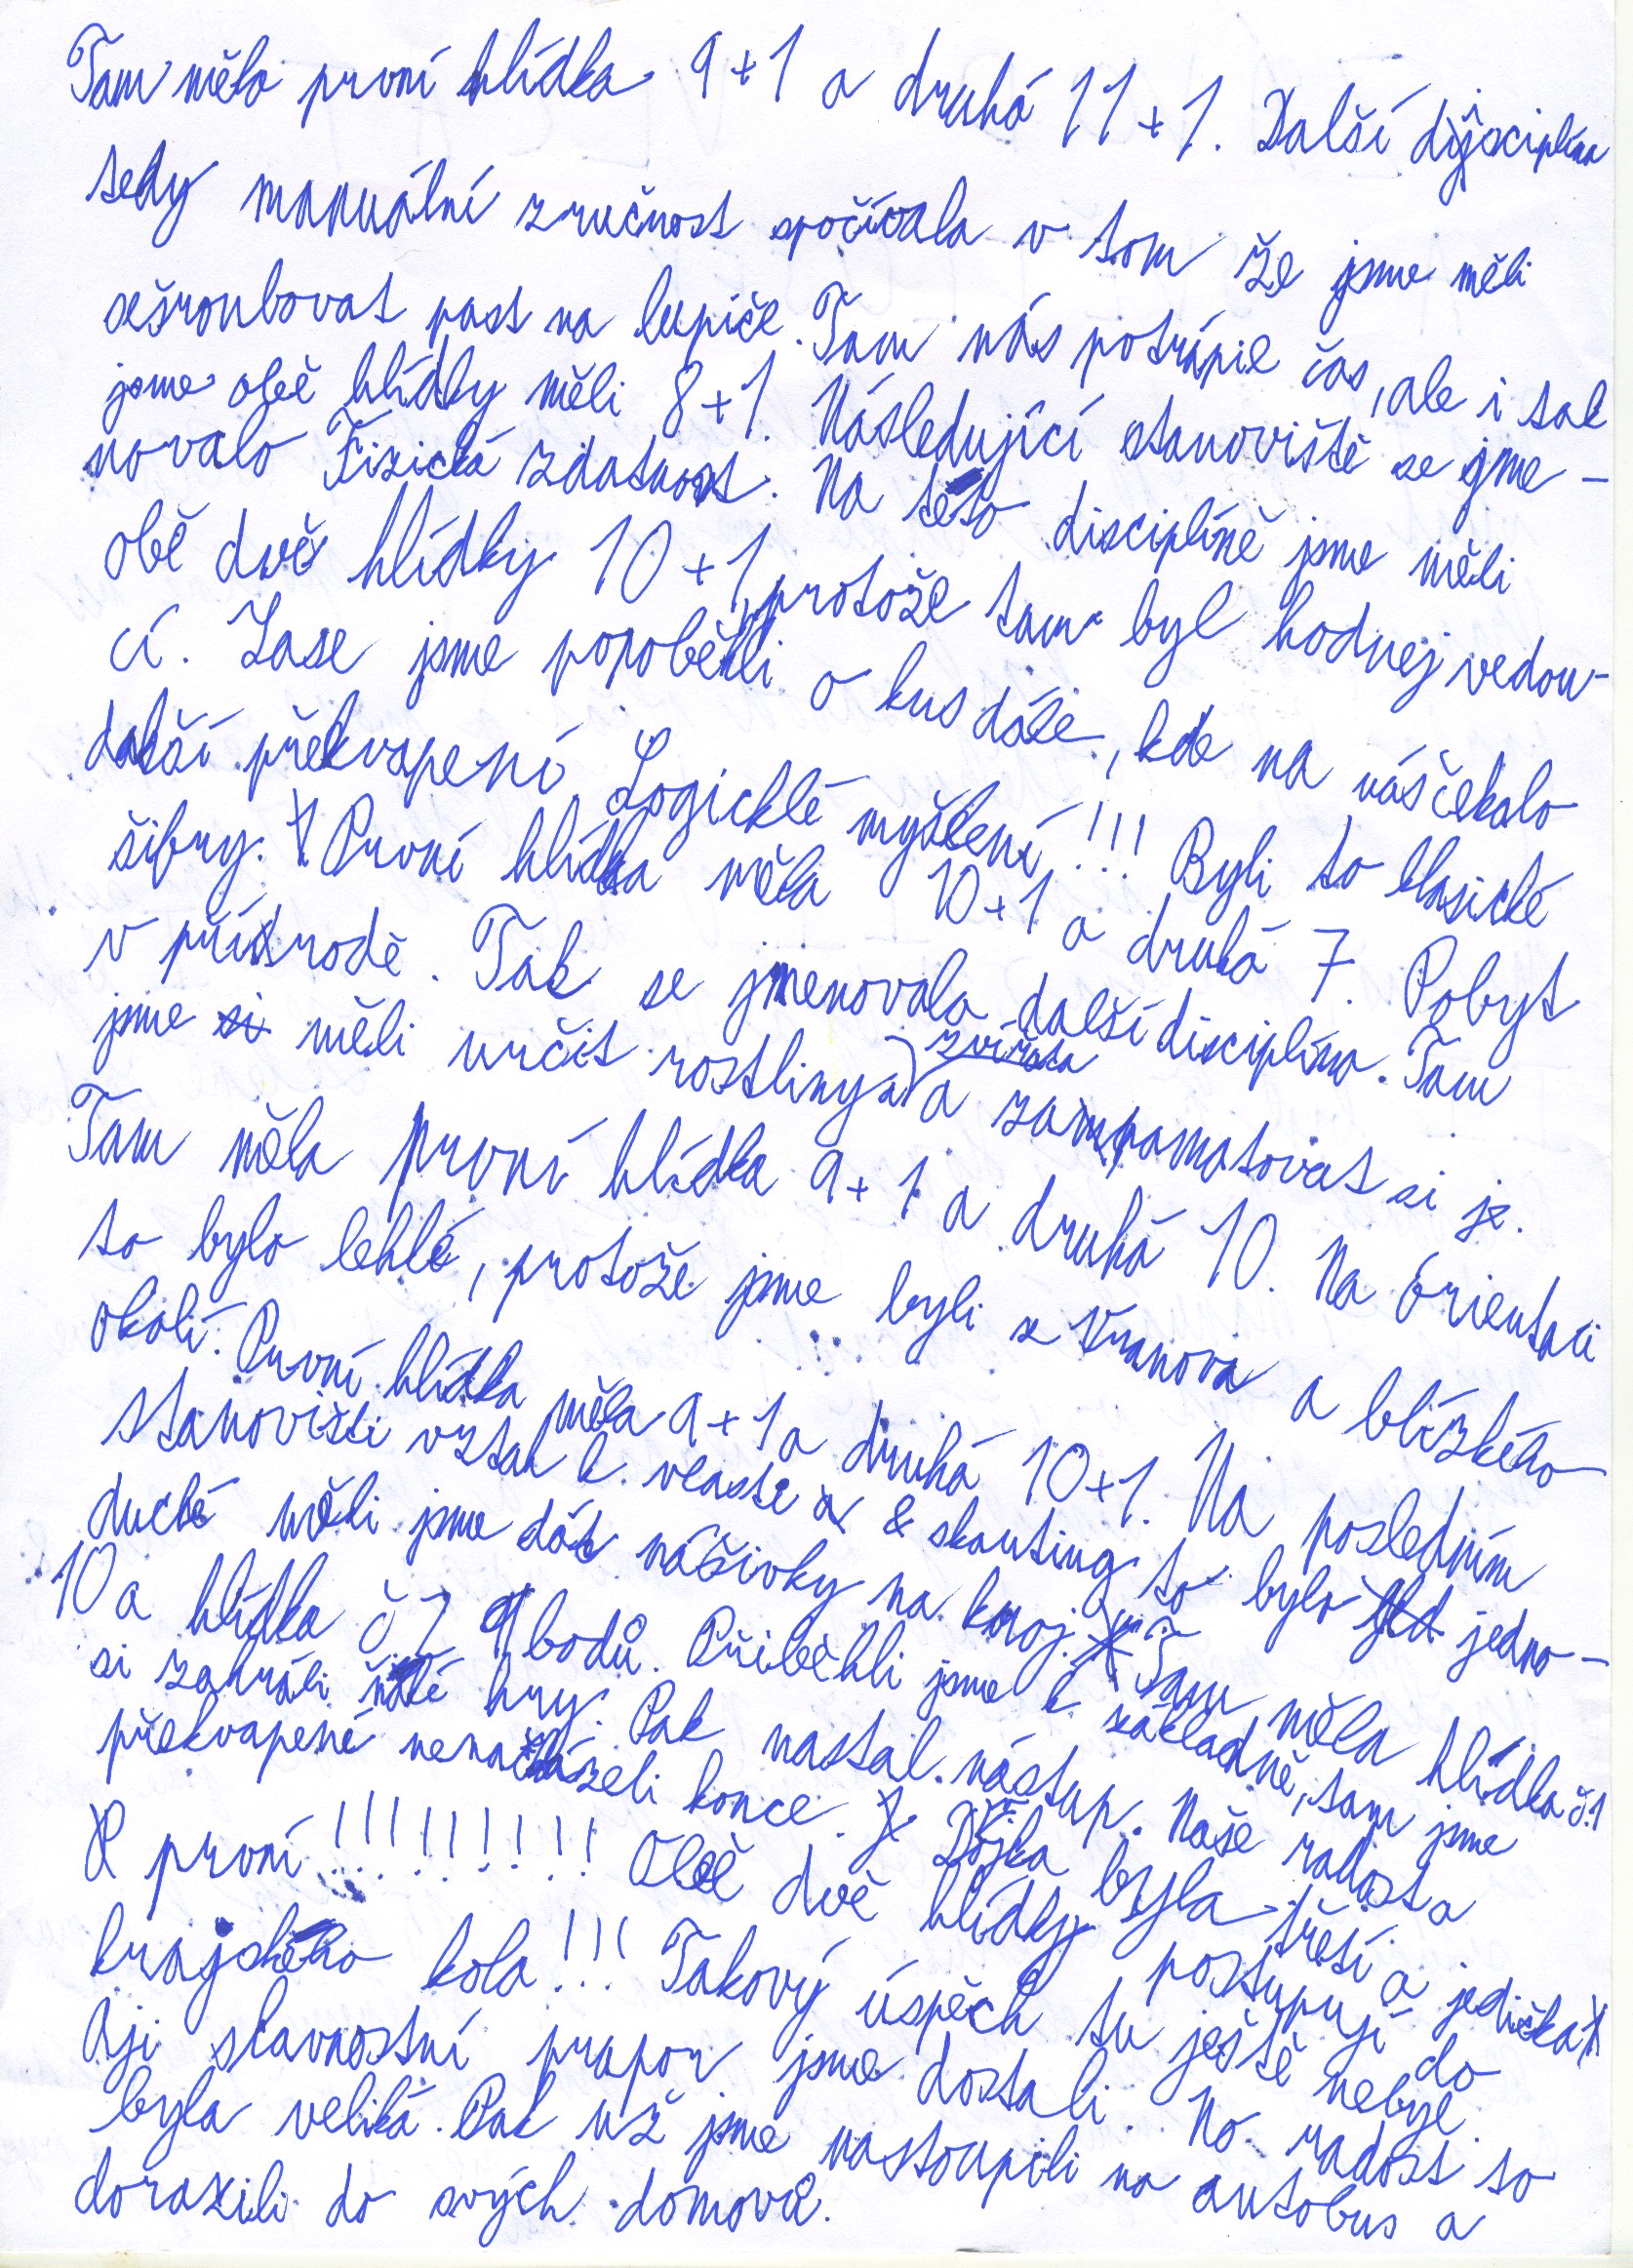 Tam měla první hlídka 9+1 a druhá 11+1. Další disciplína
tedy manuální zručnost spočívala v tom že jsme měli
sešroubovat past na lupiče. Tam nás potrápil čas, ale i tak
jsme obě hlídky měli 8+1. Následující stanoviště se jme-
novalo Fizická zdatnost. Na této disciplíně jsme měli
obě dvě hlídky 10+1, protože tam byl hodnej vedou-
cí. Zase jsme popoběhli o kus dále, kde na nás čekalo
další překvapení Logické myšlení!!! Byli to klasické
šifry. První hlídka měla 10+1 a druhá 7. Pobyt
v přírodě. Tak se jmenovala další disciplína. Tam
jsme měli určit rostliny a zvířata a zapamatovat si je.
Tam měla první hlídka 9+1 a druhá 10. Na orientaci
to bylo lehké, protože jsme byli z Vranova a blízkého
okolí. První hlídka měla 9+1 a druhá 10+1. Na posledním
stanovišti vztah k vlasti & skauting to bylo jedno-
duché měli jsme dát nášivky na kroj. Tam měla hlídka č.1
10 a hlídka č 7 9 bodů. Přiběhli jsme k základně, tam jsme
si zahráli hry. Pak nastal nástup. Naše radost a
překvapené nenacházeli konce. Dvojka byla třetí a jednička
první!!!!!!!!! Obě dvě hlídky postupují do
krajského kola!!! Takový úspěch tu ještě nebyl.
Aji slavnostní prapor jsme dostali. No radost to
byla veliká. Pak už jsme nastoupili na autobus a
dorazili do svých domovů.